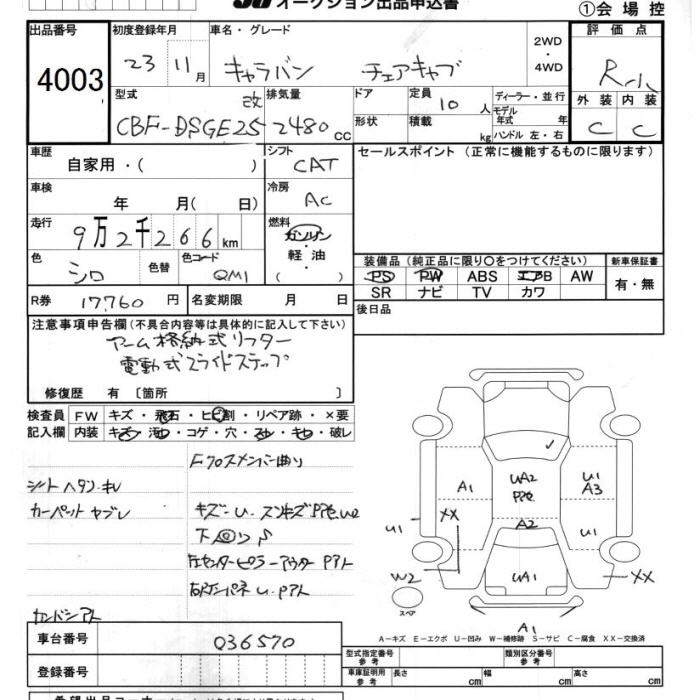 オークション出品申込書
①会場控
出品番号 初度登録年月 車名・グレード 評価点
4003 23 11月 キャラバン チェアキャブ 2WD・4WD R-ル
型式 改 排気量 ドア 定員 10人 ディーラー・並行 外装 内装
CBF-DSGE25 2480cc 形状 積載 kg モデル年式 年 ハンドル 左・右 C C
車歴 自家用・( ) シフト CAT セールスポイント(正常に機能するものに限ります)
車検 年 月( 日) 冷房 AC
走行 9万2千266km 燃料 ガソリン・軽油・( )
色 シロ 色替 色コード QM1
装備品(純正品に限り○をつけてください) 新車保証書
PS PW ABS エアB AW 有・無
SR ナビ TV カワ
R券 17760円 名変期限 月 日 後日品
注意事項申告欄(不具合内容等は具体的に記入して下さい)
アーム格納式リフター
電動式スライドステップ
修復歴 有 〔箇所 〕
検査員 FW キズ・飛石・ヒビ割・リペア跡・×要
記入欄 内装 キズ・汚れ・コゲ・穴・スレ・キレ・破レ
Fクロスメンバー曲り
シートヘタリ・キレ
カーペットヤブレ キズ・U・スリキズ
下回りS
左センターピラーアウターPアト
U・Pアト
A1 UA2 U1
A3
XX A2 U1
U1
W2 UA1 XX
スペア
A1
A-キズ E-エクボ U-凹み W-補修跡 S-サビ C-腐食 XX-交換済
車台番号 036570 型式指定番号 参考 類別区分番号 参考
登録番号 車庫証明用 参考 長さ cm 幅 cm 高さ cm